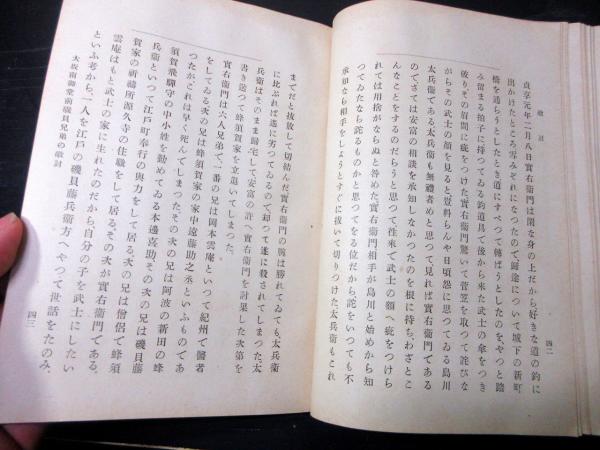 敵討
四二
貞享元年二月八日實右衛門は閑な身の上だから好きな道の釣に
出かけたところ雪みぞれになつたので歸途について城下の新町
橋を通らうとしたとき道にすべつて轉ばうとしたのを、やつと踏
み留まる拍子に持つてゐる釣道具で後から來た武士の傘をつき
破りその眉間に疵をつけた實右衛門驚いて菅笠を取つて詫びな
がらその武士の顏を見ると豈料らんや日頃怨に思つてゐる島川
太兵衛である太兵衛も無禮者めと思つて見れば實右衛門である
のでさては安富の相談を承知しなかつたのを根に持ち、わざとこ
んなことをするのだらうと思つて往來で武士の顏へ疵をつけら
れては用捨がならぬと咎めた實右衛門相手が島川と始めから知
つてゐたなら詫るものかと思つてをる位だから詫をいつても不
承知なら相手をしようとすぐに拔いて切りつけた太兵衛もこれ
までだと拔放して切結んだ實右衛門の腕は勝れてゐても太兵衛
に比ぶれば遙に劣つてゐるので却つて遂に殺されてしまつた、太
兵衛はそのまま歸宅して安富の許へ實右衛門を討果した次第を
書き送つて蜂須賀家を立退いてしまつた。
實右衛門は六人兄弟で一番の兄は岡本雲庵といつて紀州で醫者
をしてゐる次の兄は蜂須賀家の家中遠藤助之丞といふものであ
つたがこれは早く死んでしまつたその次の兄は阿波の新田の蜂
須賀飛騨守の中小姓を勤めてゐる本邊喜助、その次の兄は磯貝藤
兵衛といつて江戸町奉行の與力をして居る、次の兄は僧侶で蜂須
賀家の祈禱所源久寺の住職をして居る、その次が實右衛門である、
雲庵はもと武士の家に生れたのだから自分の子を武士にしたい
といふ考から、一人を江戸の磯貝藤兵衛方へやつて世話をたのみ、
大坂南御堂前磯貝兄弟の敵討
四三